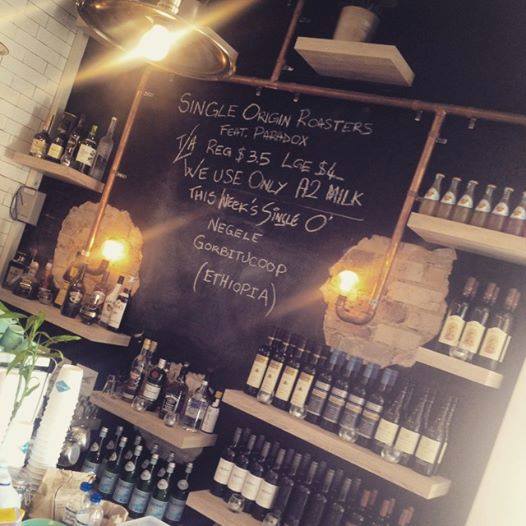 Single Origin Roasters
Feat. Paradox
T/A Reg $3.5 Lge $4
We use only A2 Milk
This Week's Single O'
Negele
Gorbitucoop
(Ethiopia)